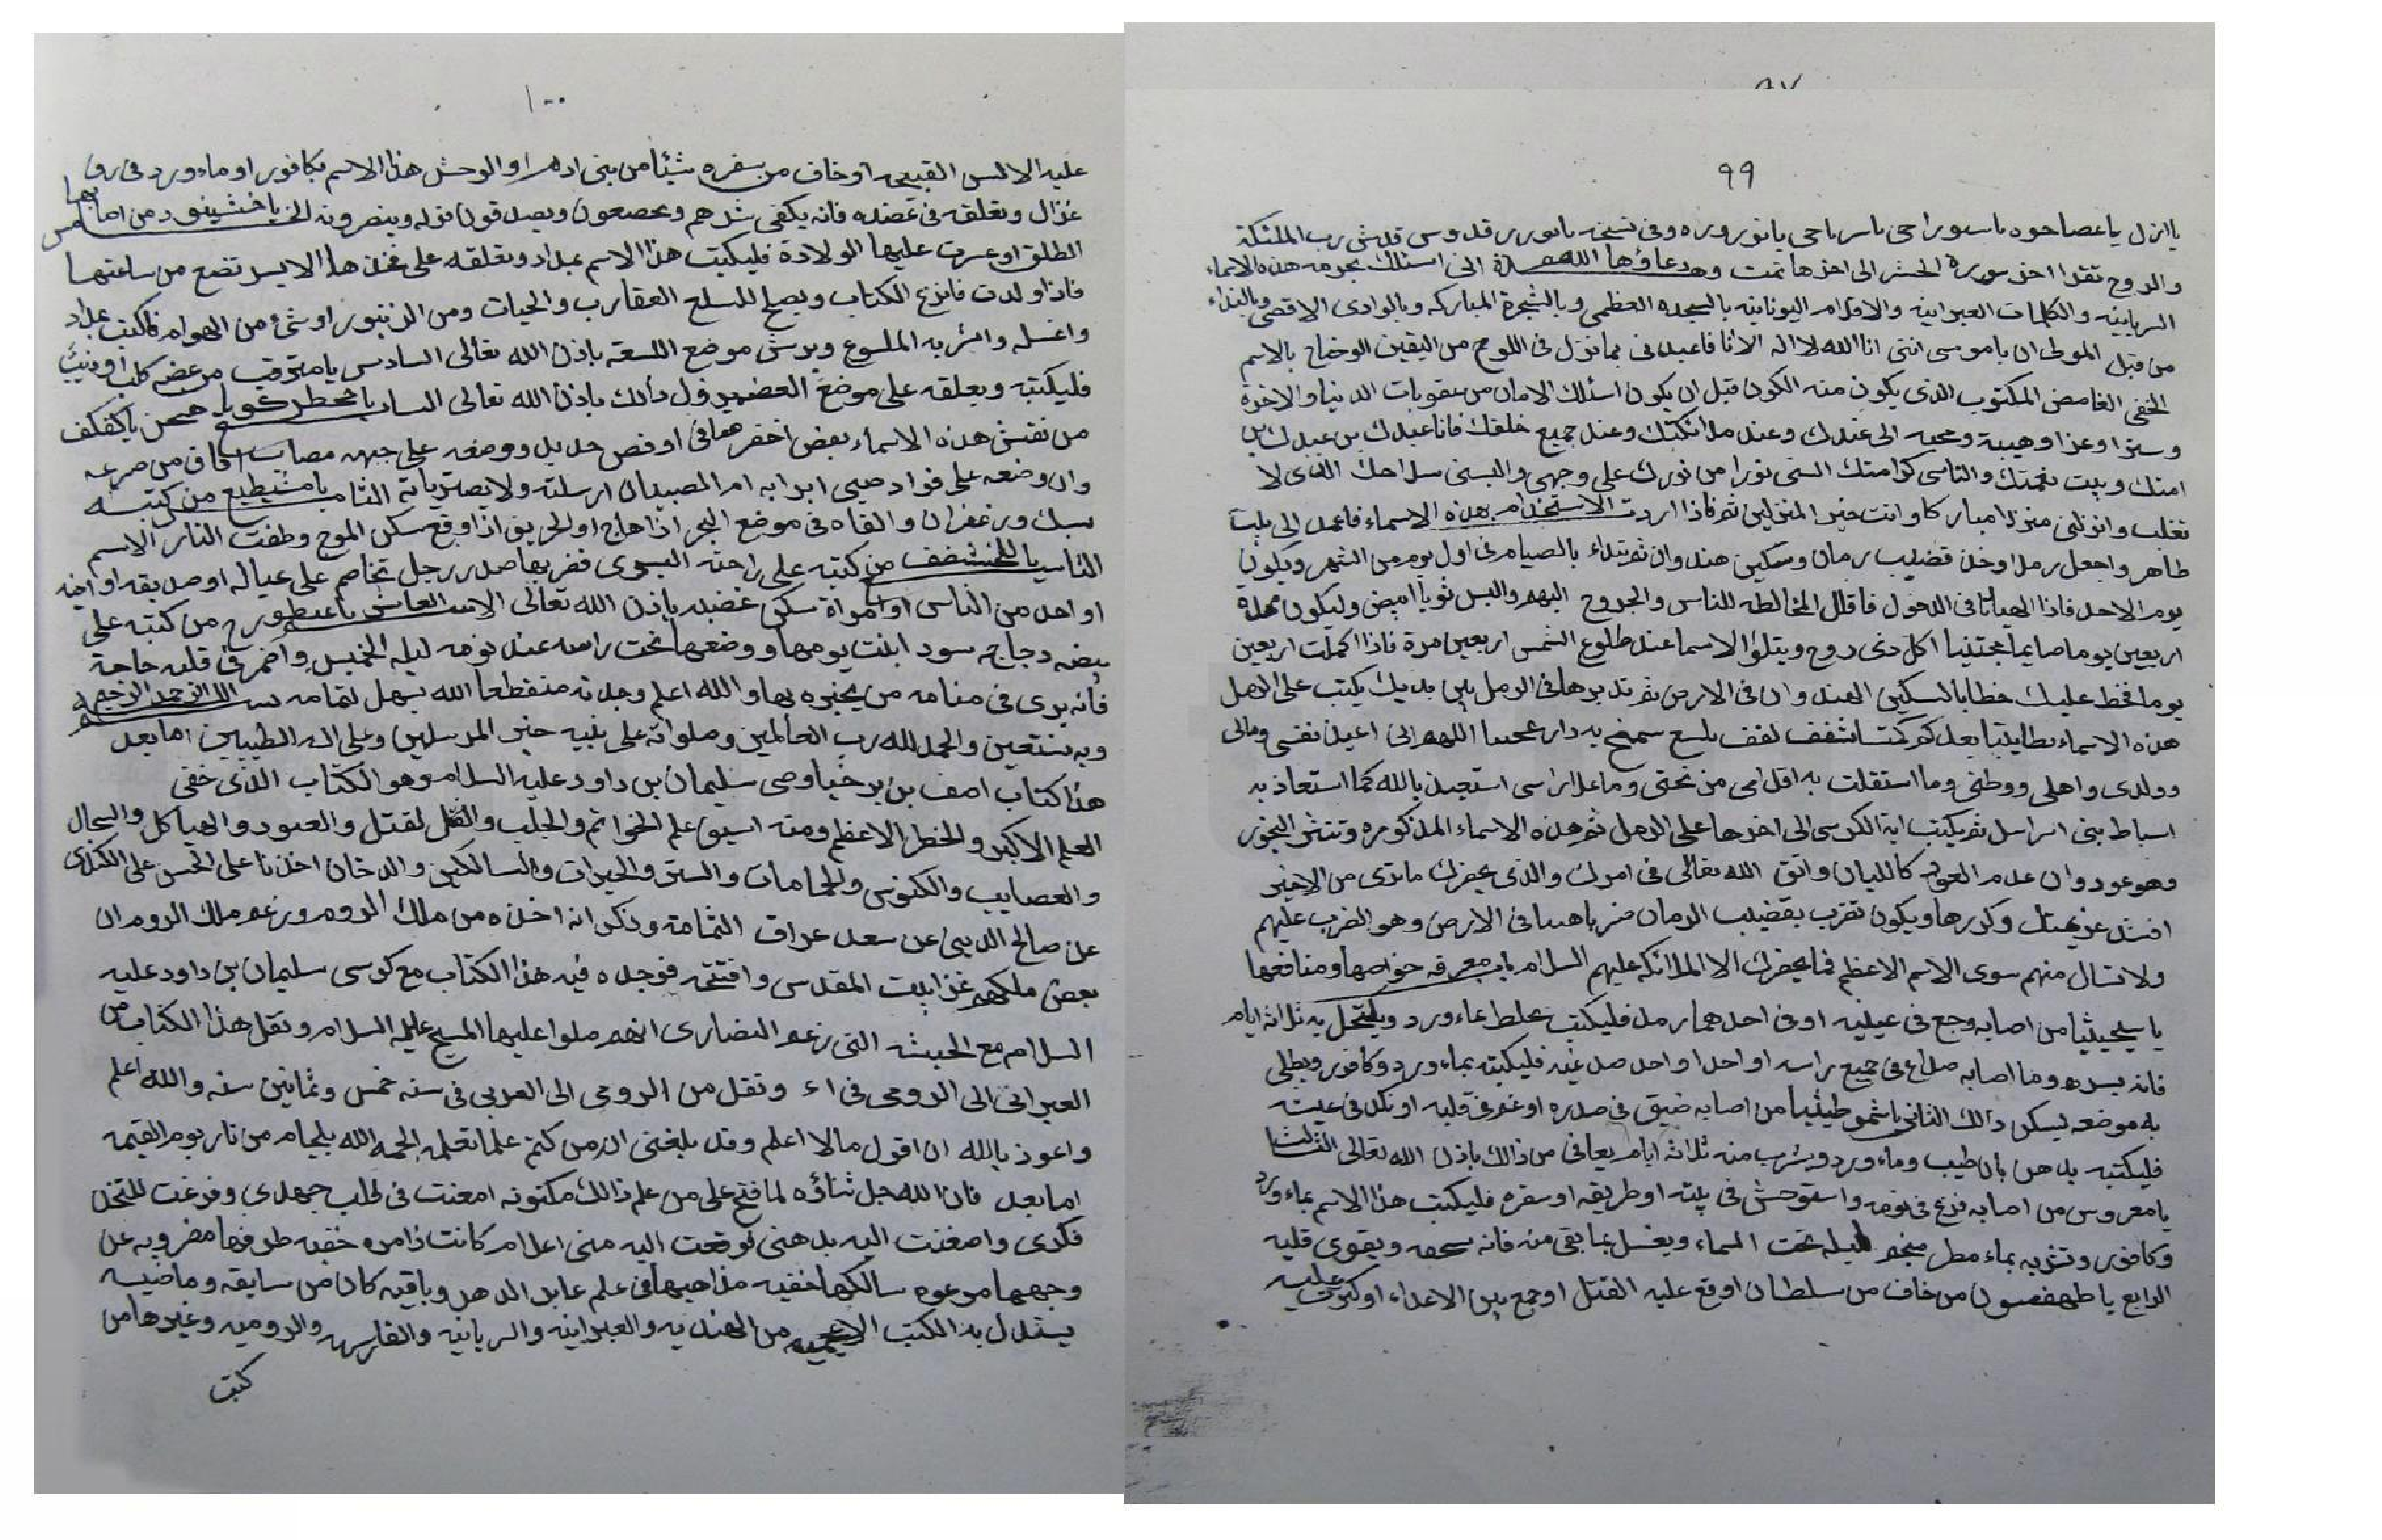 ٩٩
يا انزل يا عصا حوه يا سورا حى يا سرياحى يا نوروره وفى نسخه يا نوربر قدوس قدش رب الملئكة
والروح تقرا اخر سورة الحشر الى اخرها تمت وهو دعاؤها اللهم انى اسئلك بحرمه هذه الاسماء
السريانيه والكلمات العبرانيه والاقلام اليونانيه بالسجده العظمى وبالشجرة المباركه وبالوادى الاقصى وبالنداء
من قبل الموطى ان يا موسى اننى انا الله لا اله الا انا فاعبدنى بما نزل فى اللوح من اليقين الوضاح بالاسم
الخفى الغامض المكتوب الذى يكون منه الكون قبل ان يكون اسئلك الامان من عقوبات الدنيا والاخرة
وسترا وعزا وهيبة ومحبه الى عندك وعند ملائكتك وعند جميع خلقك فانا عبدك بن عبدك بن
امتك وبيت نعمتك والباسى كرامتك البسنى نورا من نورك على وجهى والبسنى سلاحك الذى لا
تغلب وانزلنى منزلا مباركا وانت خير المنزلين ثم فاذا اردت الاستخدام بهذه الاسماء فاعمد الى بيت
طاهر واجعل رملا وخذ قضيب رمان وسكين هندوان ثم تبتداء بالصيام فى اول يوم من الشهر ويكون
يوم الاحد فاذا الهياتا فى الدخول فاقلل المخالطه للناس والخروج اليهم والبس ثوبا ابيض وليكون مدة
اربعين يوما صايما مجتنبا اكل ذى روح ويتلوا الاسما عند طلوع الشمس اربعين مرة فاذا اكملت اربعين
يوما فخط عليك خطا بالسكين الهندوان فى الارض ثم تديرها فى الرمل بين يديك يكتب على الرمل
هذه الاسماء بعد كركتا شفف لفف بلسع سمفح به دار اللهم انى اعيذ نفسى ومالى
وولدى واهلى ووطنى وما استقلت به اقدامى من تحتى وما علا راسى استجيذ بالله كما استعاذ به
اسباط بنى اسرائيل ثم يكتب اية الكرسى الى اخرها على الرمل ثم هذه الاسماء المذكوره وتنثر البخور
وهو عود وان عدم العود كاللبان واتق الله تعالى فى امرك والذى يحضرك ما ترى من الاخير
افسد عزيمتك وكررها ويكون تضرب بقضيب الرمان ضربا هينا فى الارض وهو الضرب عليهم
ولا تسال منهم سوى الاسم الاعظم فما يحضرك الا الملائكه عليهم السلام باب معرفه خواصها ومنافعها
يا يلحيثيا من اصابه وجع فى عينيه او فى احدهما رمد فليكتب علط بماء ورد ويكتحل به ثلاثه ايام
فانه يبره وما اصابه صداع فى جميع راسه او احدا واحد صدغيه فليكتبه بماء ورد وكافور ويطلى
به موضعه يسكن ذالك الثانى يا شموطيثيا من اصابه ضيق فى صدره او غم فى قلبه او نكد فى عيشه
فليكتبه بدهن بان طيب وماء ورد ويشرب منه ثلاثه ايام يعافى من ذالك باذن الله تعالى الثالث
يا معروس من اصابه فزع فى نومه واستوحش فى بيته او طريقه او سفره فليكتب هذا الاسم بماء ورد
وكافور وتشربه بماء مطر منجم ليله تحت السماء ويغسل بما بقى منه فانه ويقوى قلبه
الرابع يا طهفسون من خاف من سلطان اوقع عليه القتل اوجمع بين الاعداء او كبرت عليه
١٠٠
عليه الالسن القبيحه او خاف من سفره شيئا من بنى ادم او الوحش هذا الاسم بكافور او ماء ورد فى رق
غزال وتعلقه فى عضده فانه يكفى شرهم ويخضعون ويصدقون قوله وينصرونه الخامس يا خشينود من اصابها
الطلق او عسرت عليها الولادة فليكتب هذا الاسم بمداد وتعلقه على فخذها الايسر تضع من ساعتها
فاذا ولدت فانزع الكتاب ويصلح للسلع العقارب والحيات ومن الزنبور او شئ من الهوام فاكتب بمداد
واغسله واشربه الملسوع ويرش موضع اللسعه باذن الله تعالى السادس يا مترقب من عضه كلب او ذئب
فليكتبه ويعلقه على موضع العض يزول ذالك باذن الله تعالى السابع يا محطر كويا همحن يا كفكف
من نقش هذه الاسماء بفص اخضر صافى او فص حديد ووضعه على جبهه مصاب افاق من صرعه
وان وضعه على فواد صبى ابرا به ام الصبيان ارسلته ولا يصتريا به الثامن يا مشيطيع من كتبه
بسك وزعفران والقاه فى موضع البحر اذا هاج او الحريق اذا وقع سكن الموج وطفئت النار الاسم
التاسع يا للخشفف من كتبه على راحته اليسرى فضر بها صدر رجل تخاصم على عياله او صديقه او اخيه
او احد من الناس او امراة سكن غضبه باذن الله تعالى الاسم العاشر يا عيطورح من كتبه على
بيضه دجاجه سودا بنت يومها ووضعها تحت راسه عند نومه ليله الخميس واضمر فى قلبه حاجة
فانه يرى فى منامه من يخبره بها والله اعلم وجدته منقطعا الله يسهل لتمامه بسم الله الرحمن الرحيم
وبه نستعين والحمد لله رب العالمين وصلواته على نبيه خير المرسلين وعلى اله الطيبين اما بعد
هذا كتاب اصف بن برخيا وصى سليمان بن داود عليه السلام وهو الكتاب الذى خفى
العلم الاكبر والخطر الاعظم ومنه اسبق علم الخواتم والجلب والقل لقتل والعبود والهياكل والسجال
والعصايب والكنوس والجامات والستر والخيرات والساكين والدخان اخذنا على الحسن على الكندى
عن صالح الديبى عن سعد عراق الثمامة وذكر انه اخذه من ملك الروم وزعم ملك الروم ان
بعض ملكهم غزا بيت المقدس وافتتحه فوجده فيه هذا الكتاب مع كرسى سليمان بن داود عليه
السلام مع الخبشه التى زعم النضارى انهم صلوا عليها المسيح عليه السلام ونقل هذا الكتاب من
العبرانى الى الرومى فى اء ونقل من الرومى الى العربى فى سنه خمس وثمانين سنه والله اعلم
واعوذ بالله ان اقول مالا اعلم وقد بلغنى ان من كتم علما تعلمه الجمه الله بلجام من نار يوم القيمه
اما بعد فان الله جل ثناؤه لما فتح على من علم ذالك مكنونه امعنت فى طلب جهدى وفرغت للتخل
فكرى واصغنت اليه بذهنى فوقعت اليه منى اعلام كانت ذامره خفيه طرفها مضروبه عن
وجهها مرعوه سالكها خفيه مذاهبها فى علم عابد الدهر وباقيه كان من سابقه وماضيه
يستدل به الكتب الاعجميه من الهنديه والعبرانيه والسريانيه والفارسيه والروميه وغيرها من
كتب